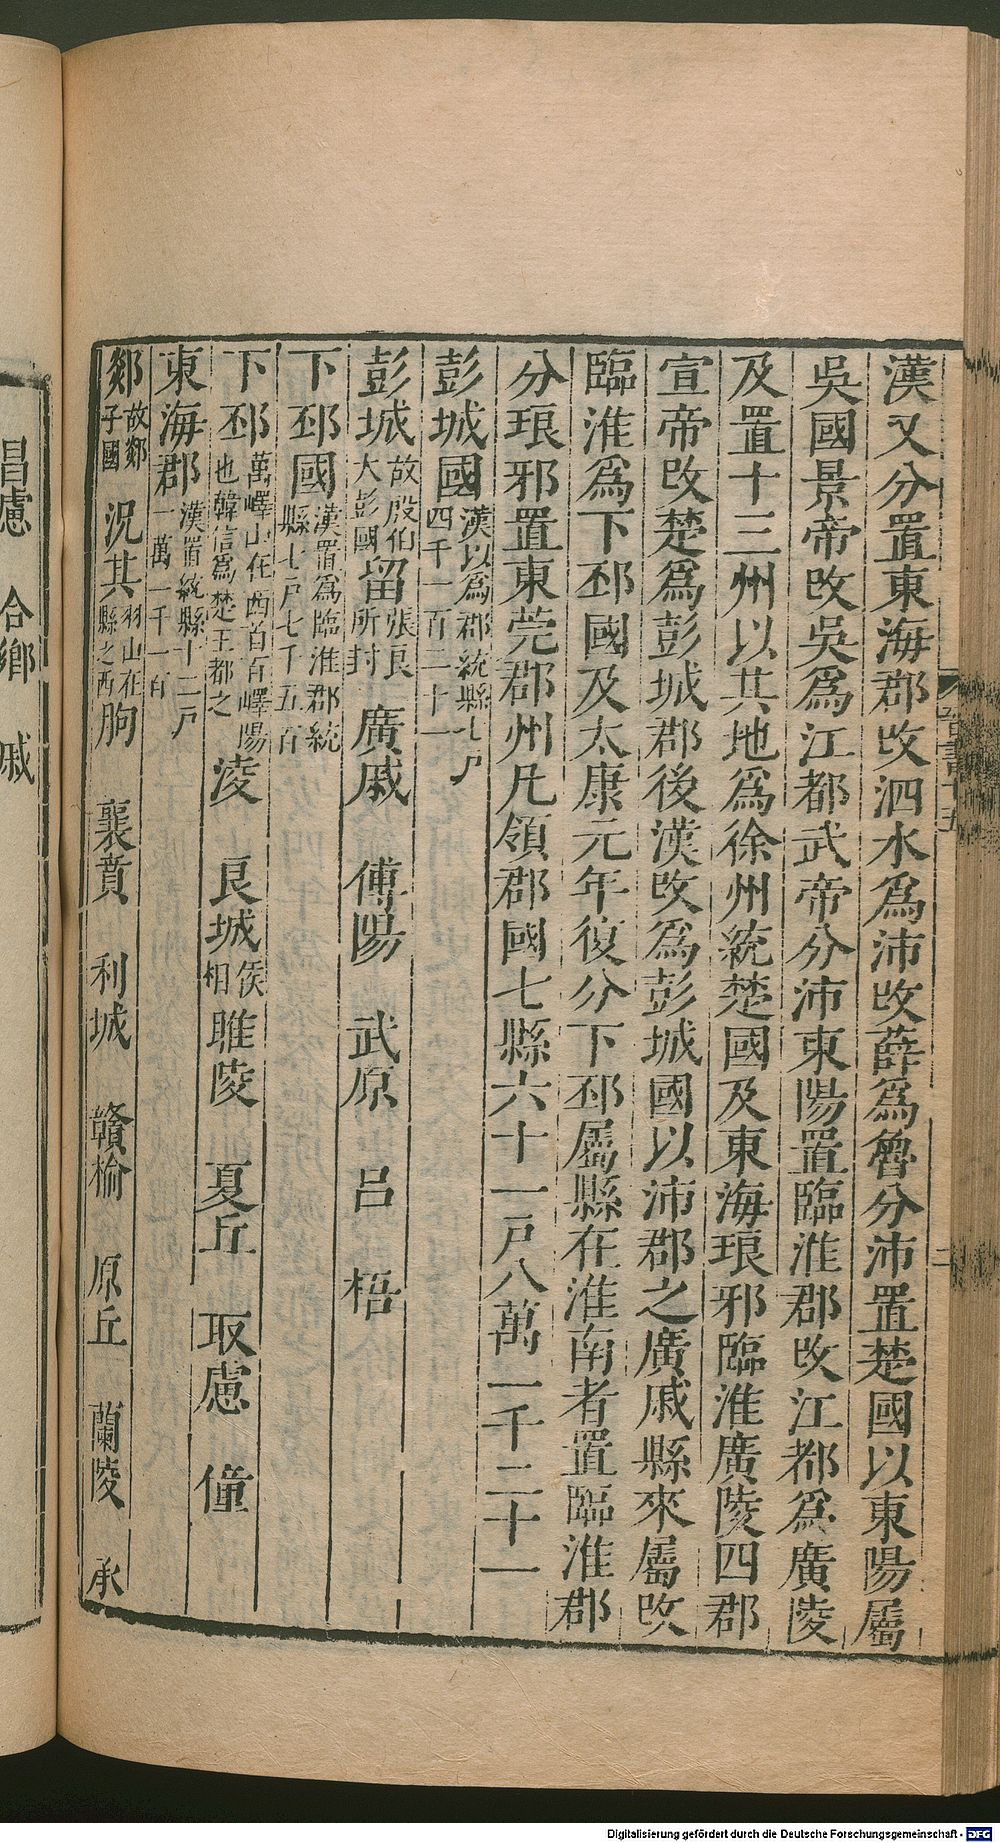 漢又分置東海郡改泗水爲沛改薛爲魯分沛置楚國以東陽屬
吳國景帝改吳爲江都武帝分沛東陽置臨淮郡改江都爲廣陵
及置十三州以其地爲徐州統楚國及東海琅邪臨淮廣陵四郡
宣帝改楚爲彭城郡後漢改爲彭城國以沛郡之廣戚縣來屬改
臨淮爲下邳國及太康元年復分下邳屬縣在淮南者置臨淮郡
分琅邪置東莞郡州凡領郡國七縣六十一戸八萬一千二十一
彭城國漢以爲郡統縣七戸四千一百二十一
彭城故殷伯大彭國留張良所封 廣戚 傅陽 武原 呂 梧
下邳國漢置爲臨淮郡統縣七戸七千五百
下邳萬嶧山在西首百嶧陽也韓信爲楚王都之凌 良城侯相睢陵 夏丘 取慮 僮
東海郡漢置統縣十二戸一萬一千一百
郯故郯子國 況其羽山在縣之西朐 襄賁 利城 贛榆 原丘 蘭陵 承
昌慮 合鄉 戚
晉書十五
二
Digitalisierung gefördert durch die Deutsche Forschungsgemeinschaft - DFG